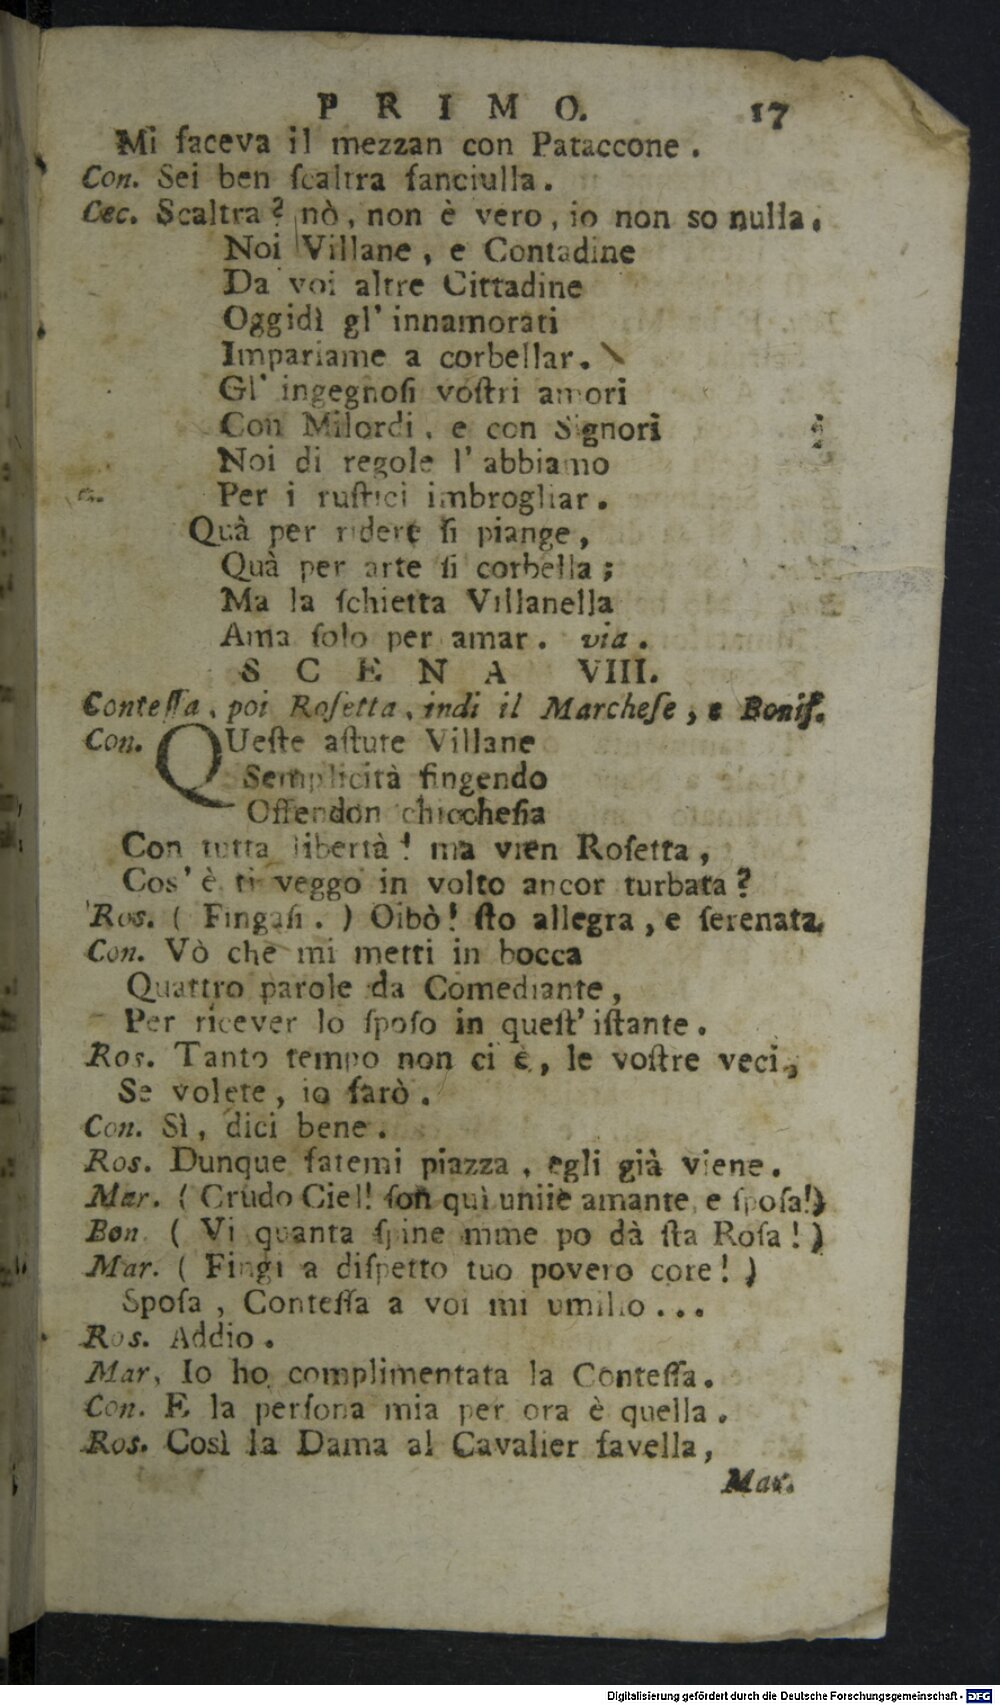 PRIMO. 17
Mi faceva il mezzan con Pataccone.
Con. Sei ben ſcaltra fanciulla.
Cec. Scaltra? nò, non è vero, io non so nulla.
Noi Villane, e Contadine
Da voi altre Cittadine
Oggidì gl' innamorati
Impariame a corbellar.
Gl' ingegnoſi voſtri amori
Con Milordi, e con Signori
Noi di regole l' abbiamo
Per i ruſtici imbrogliar.
Quà per ridere ſi piange,
Quà per arte ſi corbella;
Ma la ſchietta Villanella
Ama ſolo per amar. via.
SCENA VIII.
Conteſſa, poi Roſetta, indi il Marcheſe, e Bonif.
Con. QUeſte aſture Villane
Semplicità fingendo
Offendon chicchefia
Con tutta libertà! ma vien Roſetta,
Cos' è ti veggo in volto ancor turbata?
Ros. (Fingaſi.) Oibò! ſto allegra, e ſerenata.
Con. Vò che mi metti in bocca
Quattro parole da Comediante,
Per ricever lo ſpoſo in queſt' iſtante.
Ros. Tanto tempo non ci è, le voſtre veci,
Se volete, io farò.
Con. Sì, dici bene.
Ros. Dunque fatemi piazza, egli già viene.
Mar. (Crudo Ciel! ſon quì uniie amante, e ſpoſa!)
Bon. (Vi quanta ſpine mme po dà ſta Roſa!)
Mar. (Fingi a diſpetto tuo povero core!)
Spoſa, Conteſſa a voi mi umilio...
Ros. Addio.
Mar. Io ho complimentata la Conteſſa.
Con. E la perſona mia per ora è quella.
Ros. Così la Dama al Cavalier favella,
Mar.
Digitalisierung gefördert durch die Deutsche Forschungsgemeinschaft - DFG